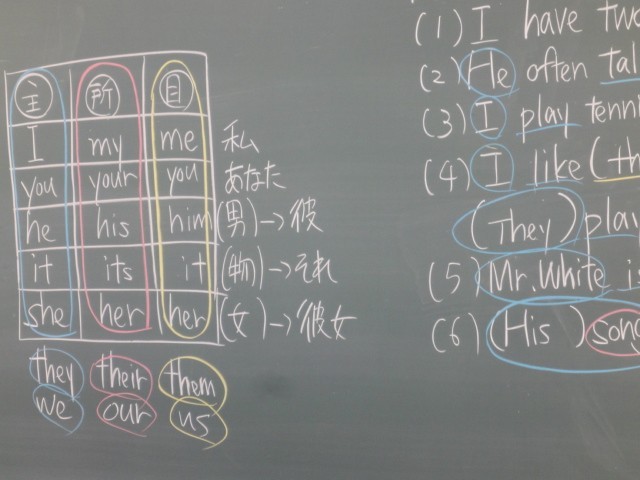 主 所 目
I my me 私
you your you あなた
he his him (男)→彼
it its it (物)→それ
she her her (女)→彼女
they their them
we our us
(1) I have two
(2) He often
(3) I play
(4) I like
(They) play
(5) Mr. White
(6) (His) song